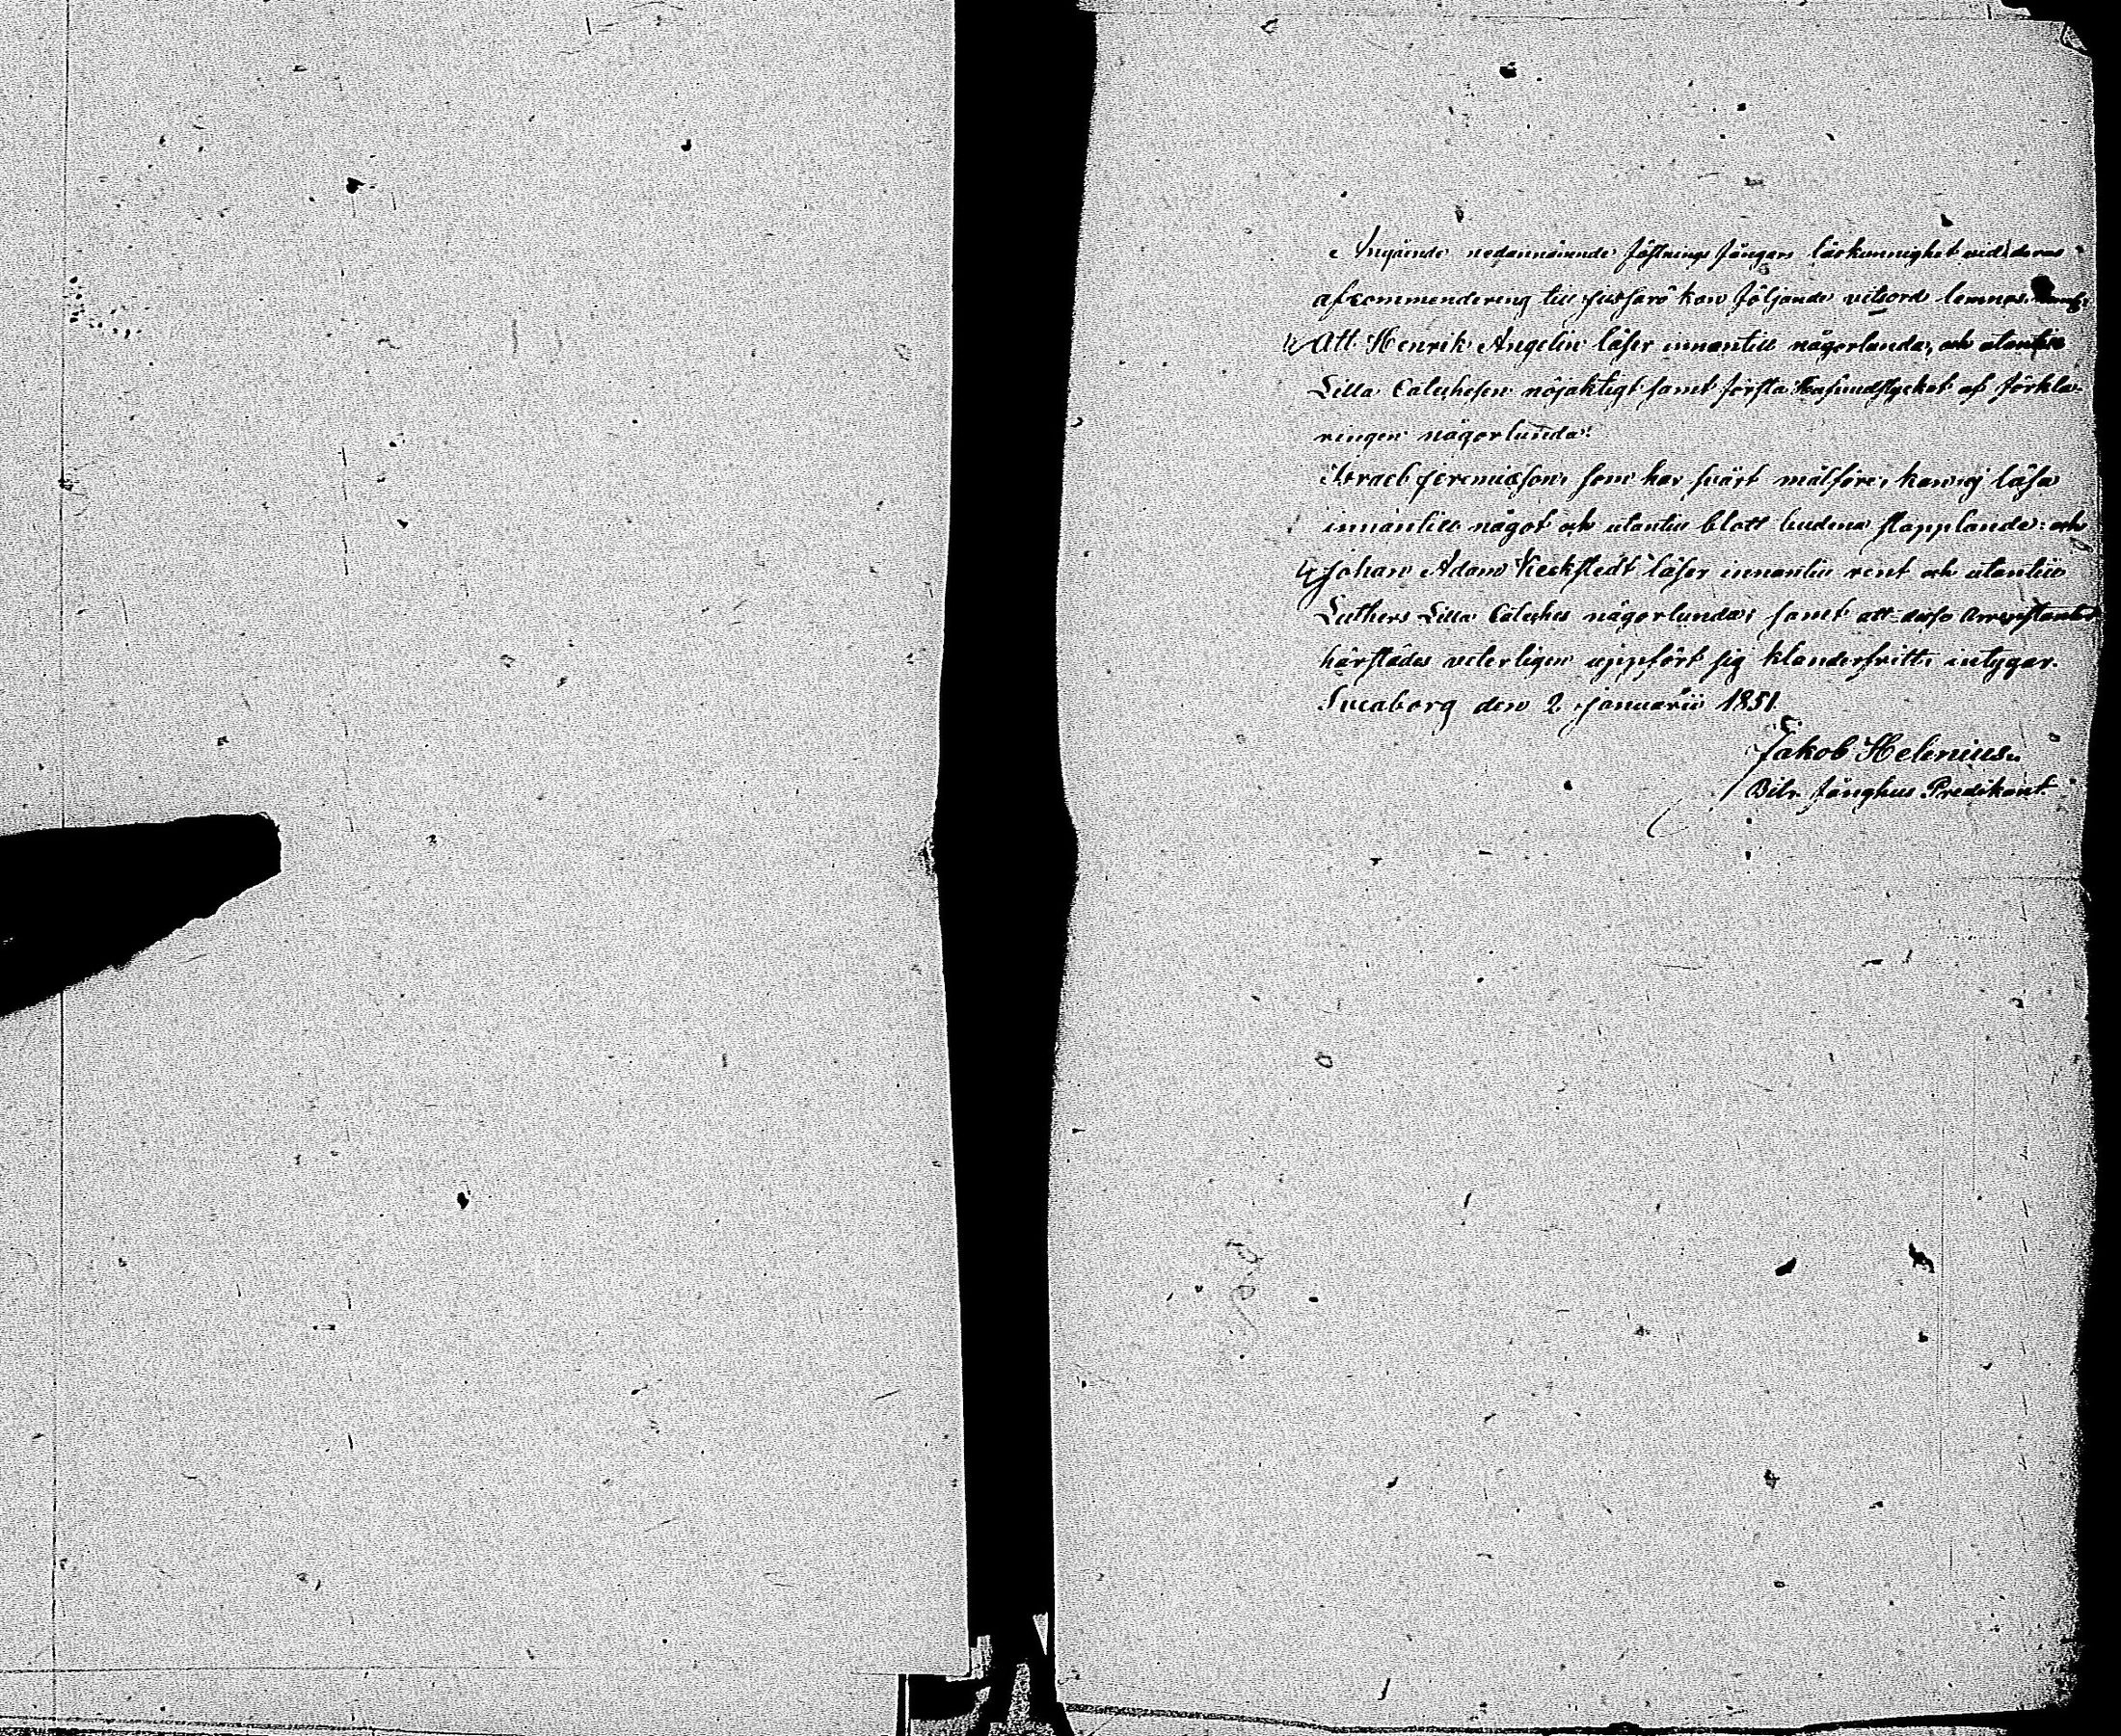 Angående nedannämnde fästnings fångars läskunnighet vid deras
afcommendering till Jussarö kan följande vitsord lemnas.
Att Henrik Angelin läser innantill någorlunda, och utantill
Lilla Catechesen nöjaktigt samt första Hufvudstycket af förkla-
ringen någorlunda.
Israel Jeremiasson, som har svårt målföre, kan ej läsa
innantill något och utantill blott budena stapplande: och
Johan Adam Keckstedt läser innantill rent och utantill
Luthers Lilla Cateches någorlunda; samt att desse Arrestanter
härstädes veterligen uppfört sig klanderfritt, intygar.
Sveaborg den 2 Januarii 1851.
Jakob Helenius.
Bitr. fånghus Predikant.